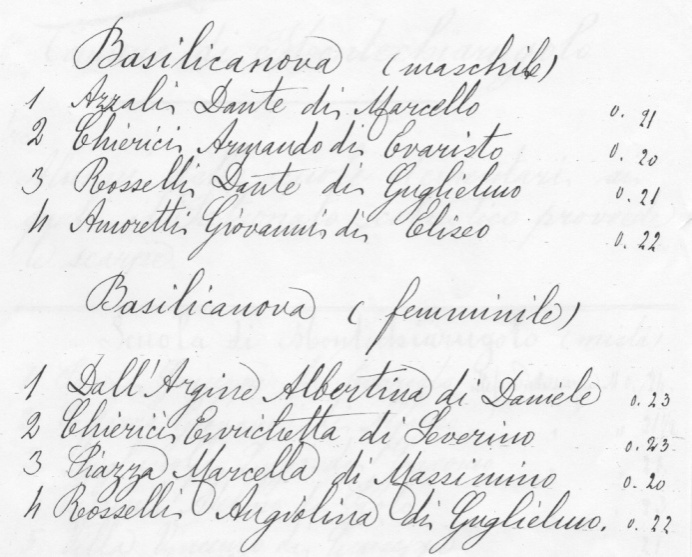 Basilicanova (maschile)
1 Azzali Dante di Marcello 0.21
2 Chierici Armando di Evaristo 0.20
3 Rosselli Dante di Guglielmo 0.21
4 Amoretti Giovanni di Eliseo 0.22
Basilicanova (femminile)
1 Dall'Argine Albertina di Daniele 0.23
2 Chierici Enrichetta di Severino 0.23
3 Piazza Marcella di Massimino 0.20
4 Rosselli Angiolina di Guglielmo. 0.22